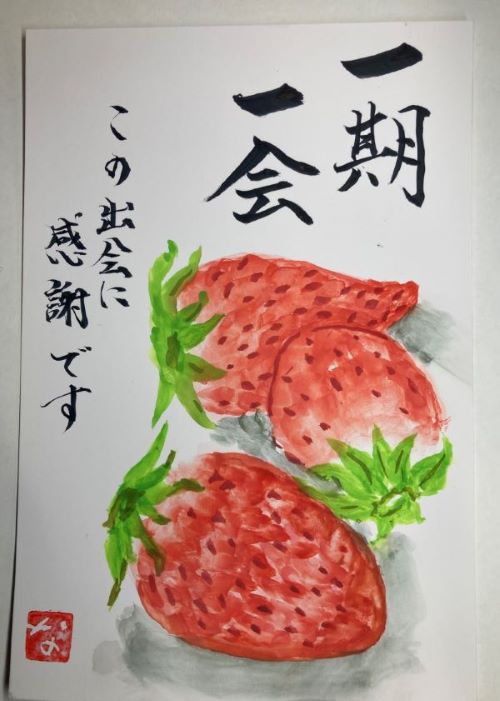 一期
一会
この出会に
感謝です